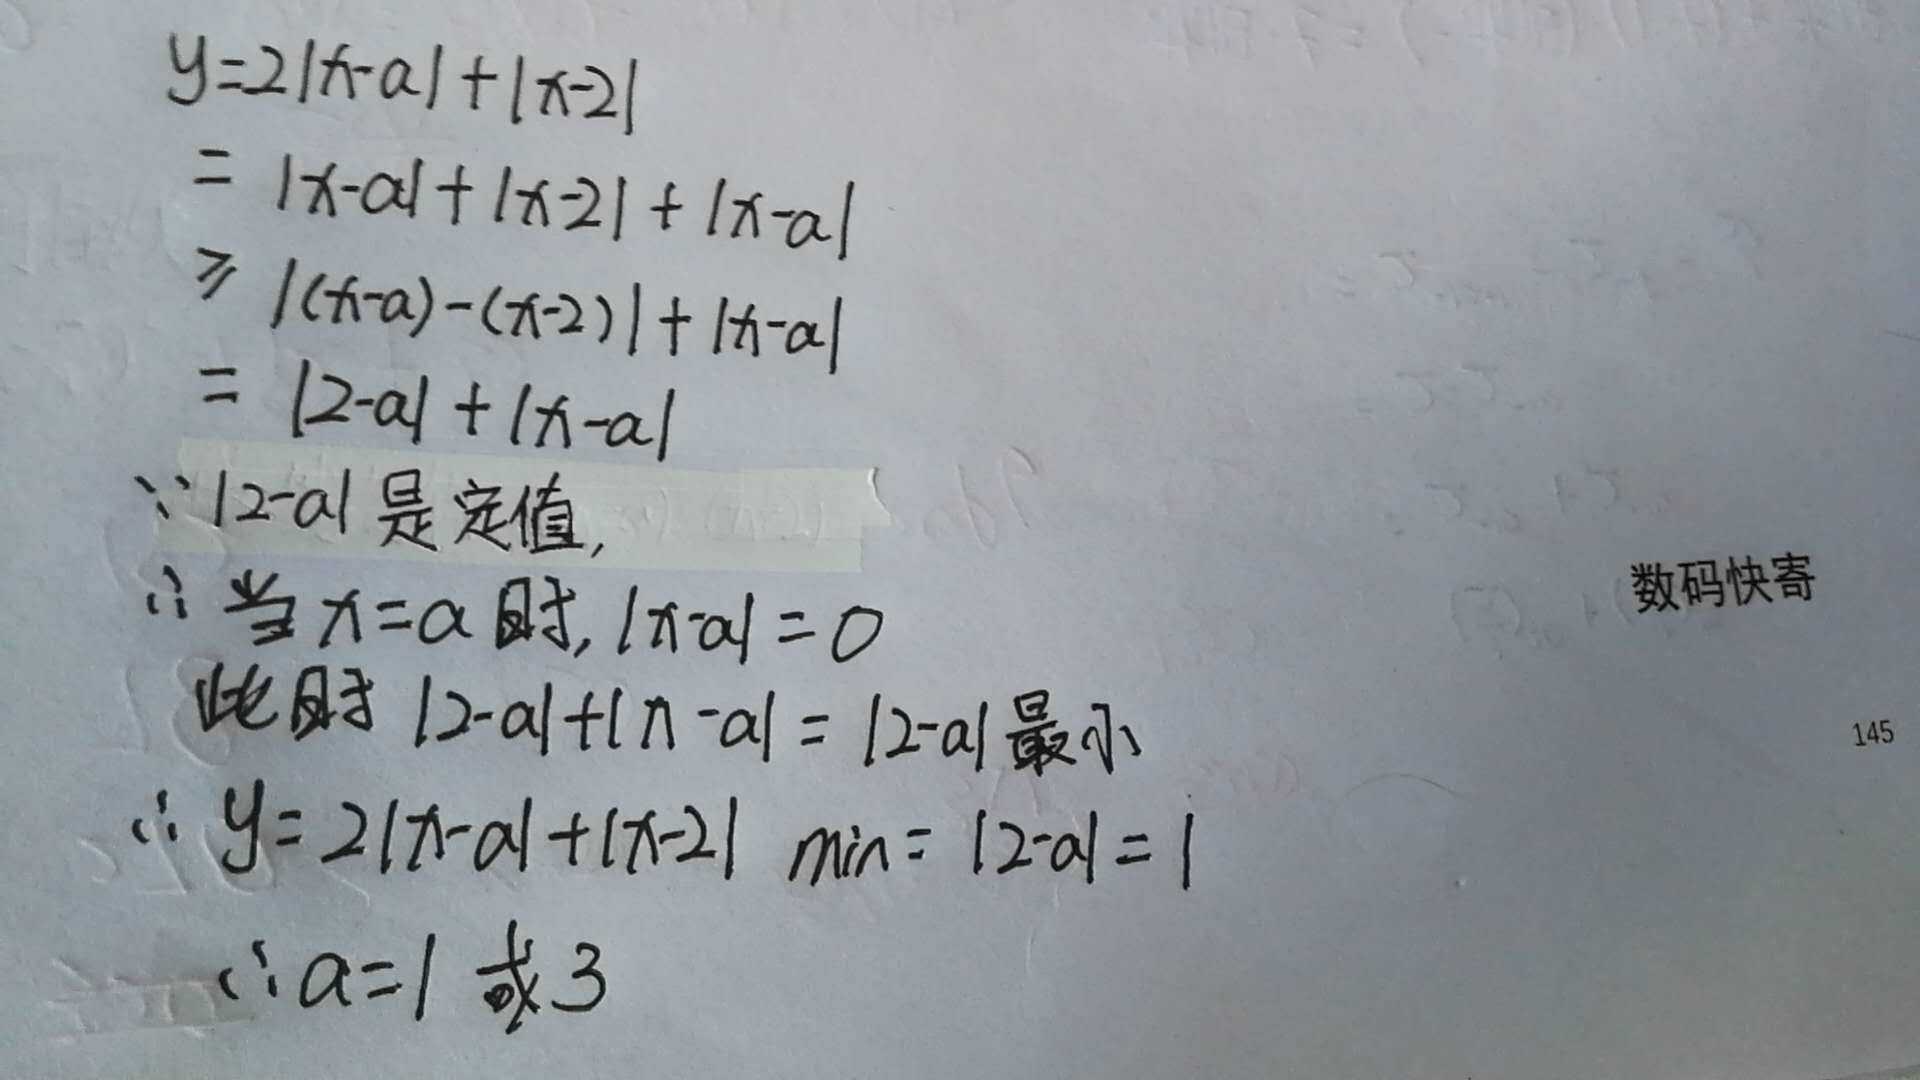 y=2|x-a|+|x-2|
= |x-a|+|x-2|+|x-a|
≥ |(x-a)-(x-2)|+|x-a|
= |2-a|+|x-a|
∵|2-a|是定值,
∴当x=a时,|x-a|=0
此时|2-a|+|x-a|=|2-a|最小
∴ y=2|x-a|+|x-2| min=|2-a|=1
∴a=1或3
数码快寄
145